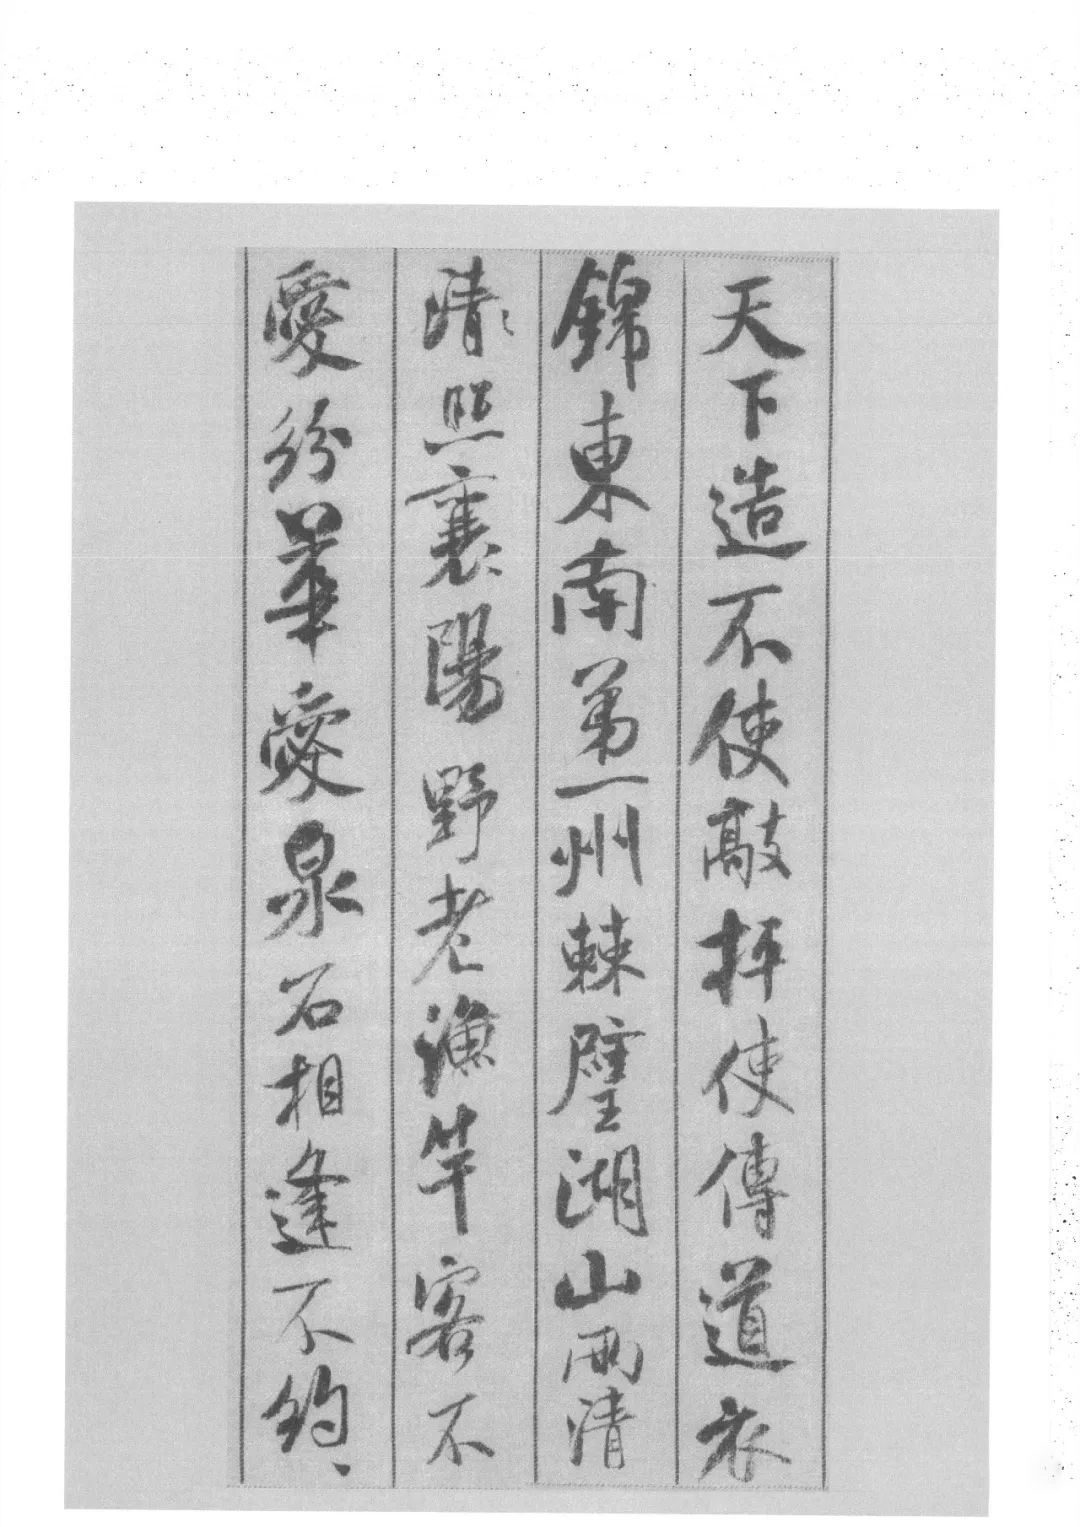 天下造不使敲抨使傳道衣
錦東南第一州棘璧湖山兩清
清照襄陽野老漁竿客不
愛紛華愛泉石相逢不約